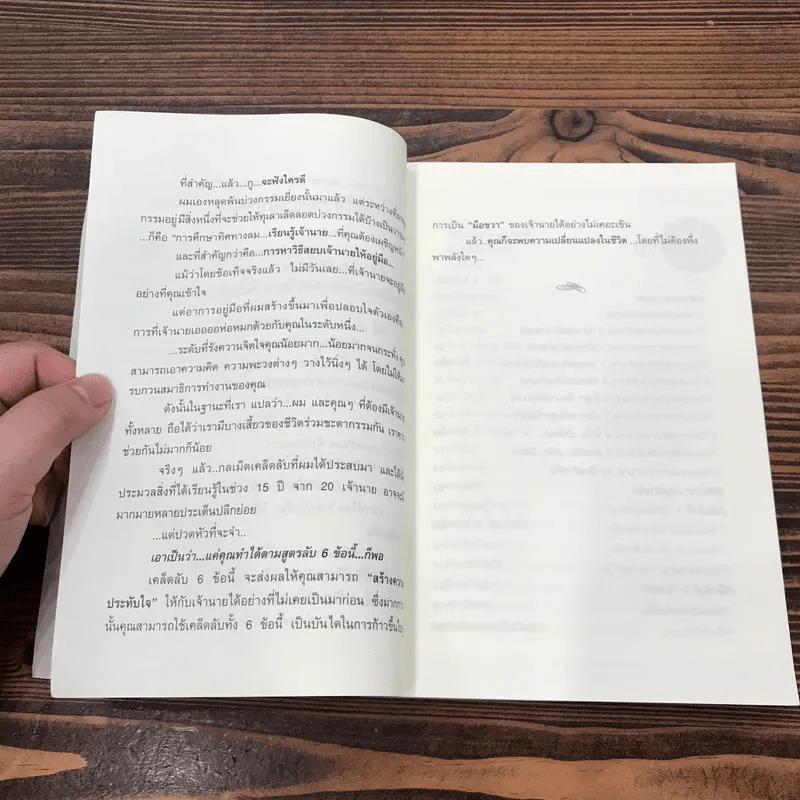 ที่สำคัญ...แล้ว...กู...จะฟังใครดี
ผมเองหลุดพ้นบ่วงกรรมเยี่ยงนั้นมาแล้ว แต่ระหว่างที่
กรรมอยู่มีสิ่งหนึ่งที่จะช่วยให้ทุเลาเล็ดลอดบ่วงกรรมได้บ้างเป็น
...ก็คือ "การศึกษาทิศทางลม...เรียนรู้เจ้านาย...ที่คุณต้องเผชิญ
และที่สำคัญกว่าคือ...การหาวิธีสยบเจ้านายให้อยู่มือ...
แม้ว่าโดยข้อเท็จจริงแล้ว ไม่มีวันเลย...ที่เจ้านายจะอยู่มือ
อย่างที่คุณเข้าใจ
แต่อาการอยู่มือที่ผมสร้างขึ้นมาเพื่อปลอบใจตัวเองคือ
การที่เจ้านายเออออห่อหมกด้วยกับคุณในระดับหนึ่ง...
...ระดับที่รังควานจิตใจคุณน้อยมาก...น้อยมากจนกระทั่ง
สามารถเอาความคิด ความพะวงต่างๆ วางไว้นิ่งๆ ได้ โดยไม่ให้
รบกวนสมาธิการทำงานของคุณ
ดังนั้นในฐานะที่เรา แปลว่า...ผม และคุณๆ ที่ต้องมีเจ้านาย
ทั้งหลาย ถือได้ว่าเรามีบางเสี้ยวของชีวิตร่วมชะตากรรมกัน
ช่วยกันไม่มากก็น้อย
จริงๆ แล้ว...กลเม็ดเคล็ดลับที่ผมได้ประสบมา และได้
ประมวลสิ่งที่ได้เรียนรู้ในช่วง 15 ปี จาก 20 เจ้านาย อาจจะ
มากมายหลายประเด็นปลีกย่อย
...แต่ปวดหัวที่จะจำ..
เอาเป็นว่า...แค่คุณทำได้ตามสูตรลับ 6 ข้อนี้...ก็พอ
เคล็ดลับ 6 ข้อนี้ จะส่งผลให้คุณสามารถ "สร้างความ
ประทับใจ" ให้กับเจ้านายได้อย่างที่ไม่เคยเป็นมาก่อน ซึ่งมากกว่า
นั้นคุณสามารถใช้เคล็ดลับทั้ง 6 ข้อนี้ เป็นบันไดในการก้าวขึ้น
การเป็น "มือขวา" ของเจ้านายได้อย่างไม่เคอะเขิน
แล้ว..คุณก็จะพบความเปลี่ยนแปลงในชีวิต ...โดยที่ไม่ต้องพึ่ง
พาพลังใดๆ...